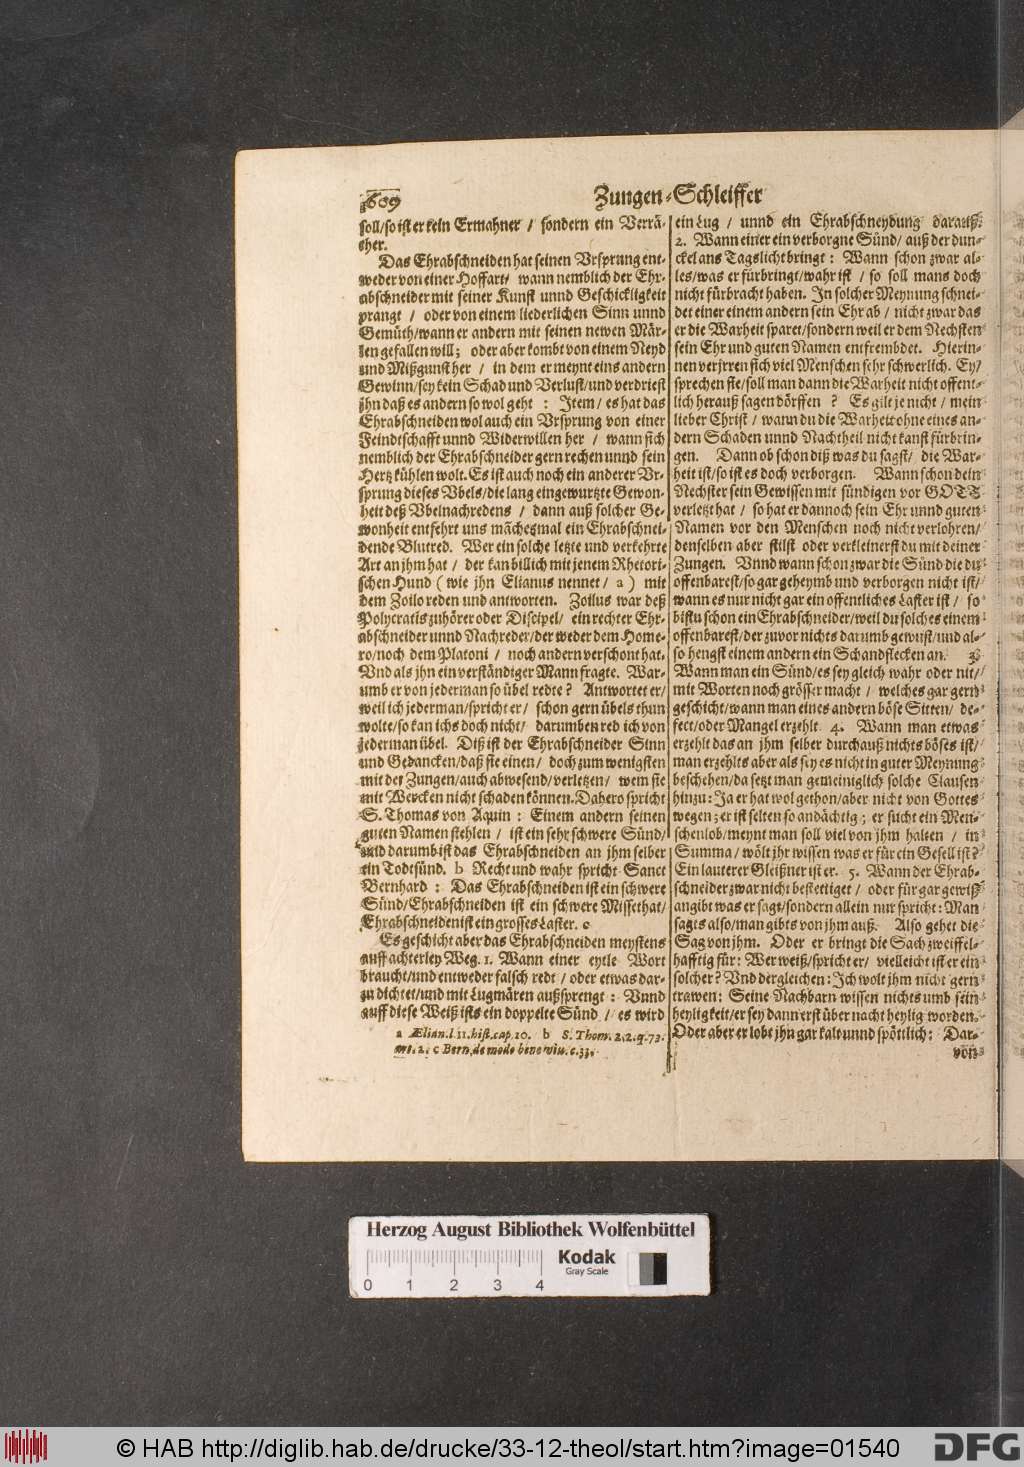 609
Zungen-Schleiffer
soll/so ist er kein Ermahner / sondern ein Verrä-
ther.
Das Ehrabschneiden hat seinen Vrsprung ent-
weder von einer Hoffart/ wann nemblich der Ehr-
abschneider mit seiner Kunst unnd Geschickligkeit
prangt / oder von einem liederlichen Sinn unnd
Gemüth/wann er andern mit seinen newen Mär-
len gefallen will; oder aber kombt von einem Neyd
und Mißgunst her / in dem er meynt eins andern
Gewinn/sey kein Schad und Verlust/und verdriest
jhn daß es andern so wol geht : Item/ es hat das
Ehrabschneiden wol auch ein Vrsprung von einer
Feindtschafft unnd Widerwillen her / wann sich
nemblich der Ehrabschneider gern rechen unnd sein
Hertz kühlen wolt. Es ist auch noch ein anderer Vr-
sprung dieses Vbels/die lang eingewurtzte Gewon-
heit deß Vbelnachredens / dann auß solcher Ge-
wonheit entfehrt uns mãchesmal ein Ehrabschnei-
dende Blutred. Wer ein solche letze und verkehrte
Art an jhm hat / der kan billich mit jenem Rhetori-
schen Hund ( wie jhn Elianus nennet / a ) mit
dem Zoilo reden und antworten. Zoilus war deß
Polycratis zuhörer oder Discipel/ ein rechter Ehr-
abschneider unnd Nachreder/der weder dem Home-
ro/noch dem Platoni / noch andern verschont hat.
Vnd als jhn ein verständiger Mann fragte. War-
umb er von jederman so übel redte? Antwortet er/
weil ich jederman/spricht er/ schon gern übels thun
wolte/so kan ichs doch nicht/ darumben red ich von
jederman übel. Diß ist der Ehrabschneider Sinn
und Gedancken/daß sie einen/ doch zum wenigsten
mit der Zungen/auch abwesend/verletzen/ wem sie
mit Wercken nicht schaden können. Dahero spricht
S. Thomas von Aquin : Einem andern seinen
guten Namen stehlen / ist ein sehr schwere Sünd/
und darumb ist das Ehrabschneiden an jhm selber
ein Todtsünd. b Recht und wahr spricht Sanct
Bernhard : Das Ehrabschneiden ist ein schwere
Sünd/Ehrabschneiden ist ein schwere Missethat/
Ehrabschneiden ist ein grosses Laster. c
Es geschicht aber das Ehrabschneiden meystens
auff achterley Weg. 1. Wann einer eytle Wort
braucht/und entweder falsch redt / oder etwas dar-
zu dichtet/und mit Lugmären außsprengt : Vnnd
auff diese Weiß ists ein doppelte Sünd / es wird
a Ælian. l. 11. hist. cap. 10. b S. Thom. 2. 2. q. 73.
art. 2. c Bern. de modo bene viu. c. 33.
ein Lug / unnd ein Ehrabschneydung darauß.
2. Wann einer ein verborgne Sünd/ auß der dun-
ckel ans Tagslicht bringt : Wann schon zwar al-
les/was er fürbringt/wahr ist / so soll mans doch
nicht fürbracht haben. In solcher Meynung schnei-
det einer einem andern sein Ehr ab / nicht zwar das
er die Warheit sparet/sondern weil er dem Nechsten
sein Ehr und guten Namen entfrembdet. Hierin-
nen verjrren sich viel Menschen sehr schwerlich. Ey/
sprechen sie/soll man dann die Warheit nicht offent-
lich herauß sagen dörffen ? Es gilt je nicht / mein
lieber Christ / wann du die Warheit ohne eines an-
dern Schaden unnd Nachtheil nicht kanst fürbrin-
gen. Dann ob schon diß was du sagst/ die War-
heit ist/so ist es doch verborgen. Wann schon dein
Nechster sein Gewissen mit sündigen vor GOTT
verletzt hat / so hat er dannoch sein Ehr unnd guten
Namen vor den Menschen noch nicht verlohren/
denselben aber stilst oder verkleinerst du mit deiner
Zungen. Vnnd wann schon zwar die Sünd die du
offenbarest/so gar geheymb und verborgen nicht ist/
wann es nur nicht gar ein offentliches Laster ist / so
bistu schon ein Ehrabschneider/weil du solches einem
offenbarest/der zuvor nichts darumb gewust/und al-
so hengst einem andern ein Schandflecken an. 3.
Wann man ein Sünd/es sey gleich wahr oder nit/
mit Worten noch grösser macht / welches gar gern
geschicht/wann man eines andern böse Sitten/ de-
fect/oder Mangel erzehlt. 4. Wann man etwas
erzehlt das an jhm selber durchauß nichts böses ist/
man erzehlts aber als sey es nicht in guter Meynung
beschehen/da setzt man gemeiniglich solche Clausen
hinzu: Ja er hat wol gethon/aber nicht von Gottes
wegen; er ist selten so andächtig ; er sucht ein Men-
schenlob/meynt man soll viel von jhm halten / in
Summa / wölt jhr wissen was er für ein Gesell ist?
Ein lauterer Gleißner ist er. 5. Wann der Ehrab-
schneider zwar nicht bestettiget / oder für gar gewiß
angibt was er sagt/sondern allein nur spricht: Man
sagts also/man gibts von jhm auß. Also gehet die
Sag von jhm. Oder er bringt die Sach zweiffel-
hafftig für: Wer weiß/spricht er/ vielleicht ist er ein
solcher? Vnd dergleichen: Ich wolt jhm nicht gern
trawen: Seine Nachbarn wissen nichts umb sein
heyligkeit/er sey dann erst über nacht heylig worden.
Oder aber er lobt jhn gar kalt unnd spöttlich: Dar-
von
Herzog August Bibliothek Wolfenbüttel
0 1 2 3 4
Kodak
Gray Scale
© HAB http://diglib.hab.de/drucke/33-12-theol/start.htm?image=01540
DFG